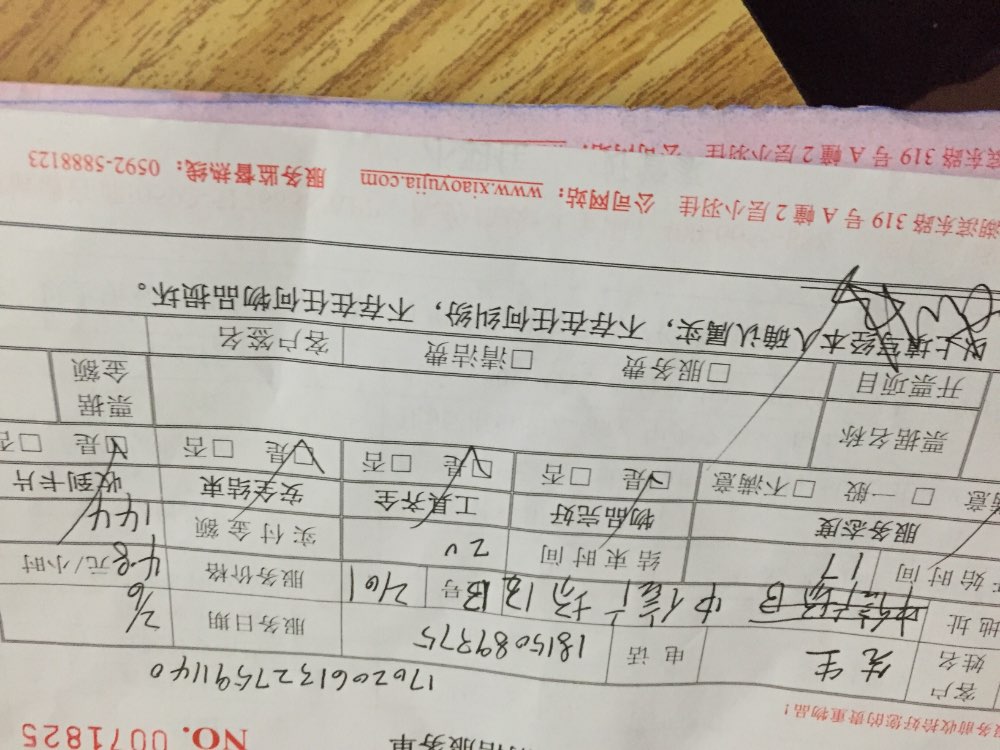 洁服务单 NO. 0071825
务前收拾好您的贵重物品！
1702061327591140
客户姓名 先生 电话 1815089375 服务日期 2/6
地址 中信广场B 号 261 服务价格 48元/小时
始时间 17 结束时间 20 实付金额 144
服务态度 物品完好 工具齐全 安全结束 收到卡片
意 □ 一般 □不满意 □是 □否 □是 □否 □是 □否 □是 □否
票据名称 票据金额
开票项目 □服务费 □清洁费 客户签名
以上填写经本人确认属实，不存在任何纠纷，不存在任何物品损坏。
湖滨东路 319 号 A 幢 2 层小羽佳 公司网站：www.xiaoyujia.com 服务监督热线：0592-5888123
滨东路 319 号 A 幢 2 层小羽佳 公司网站：